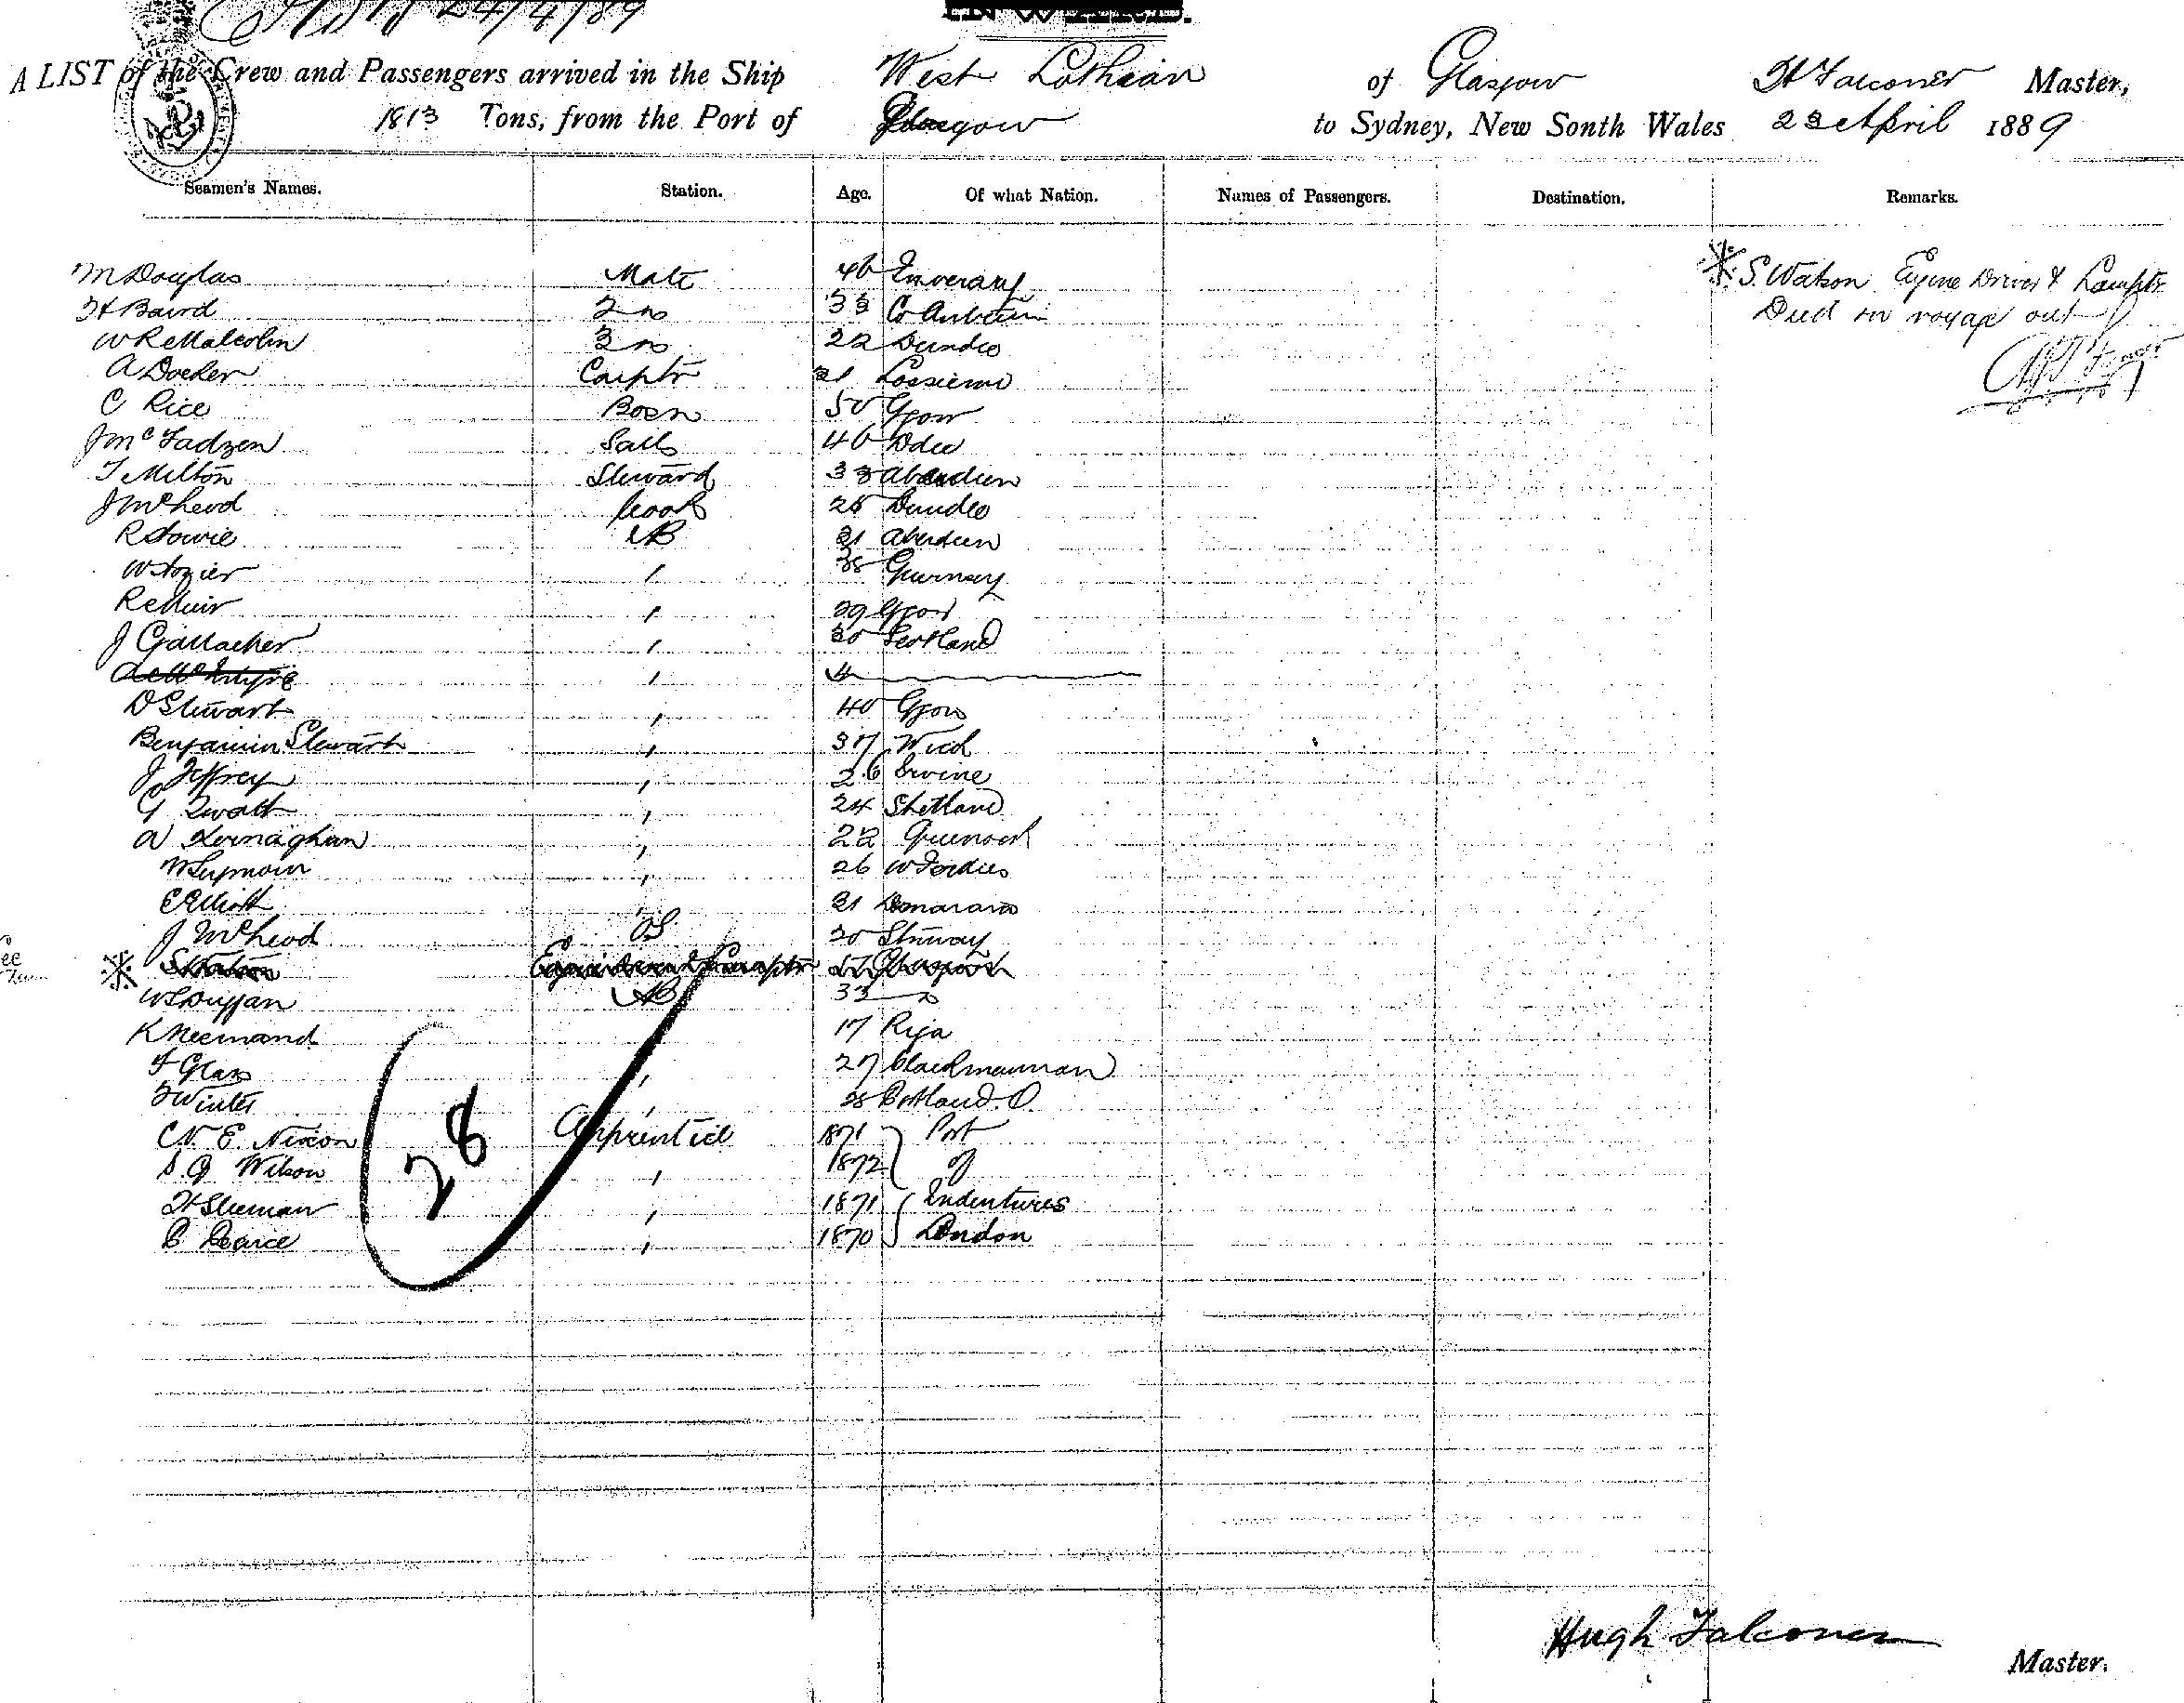 24/4/89
A LIST of the Crew and Passengers arrived in the Ship West Lothian of Glasgow H Falconer Master,
1813 Tons, from the Port of Glasgow to Sydney, New South Wales 23 April 1889
Seamen's Names. Station. Age. Of what Nation. Names of Passengers. Destination. Remarks.
M Douglas Mate 46 Inverary
H Baird 2nd 33 Co Antrim
W R Malcolm 3rd 22 Dundee
A Docker Carptr 21 Lossiemo
C Rice Bosn 50 Ggow
J McFadzen Sails 46 Ddee
T Milton Steward 33 Aberdeen
J McLeod Cook 25 Dundee
R Howie AB 21 Aberdeen
W Hozier " 38 Guernsey
R Muir " 29 Ggow
J Gallacher " 30 Scotland
D Stewart " 40 Ggow
Benjamin Stewart " 37 Wick
J Jeffrey " 26 Irvine
G " 24 Shetland
A Kernaghan " 22 Greenock
W Seymour " 26 W Indies
E Elliott " 21 Demarara
J McLeod OS 20 Stornway
※ S Watson
W S Duggan AB 33
K Neemand 17 Riga
F Glass " 27 Clackmannan
F Winter " 28 Portland. O.
C N. E. Nixon Apprentice 1871 Port
S. G Wilson " 1872 of
H Sleeman " 1871 Indentures
C Pearce " 1870 London
28
※ S. Watson Engine Driver & Lamptr
Died on voyage out
Hugh Falconer
Master.